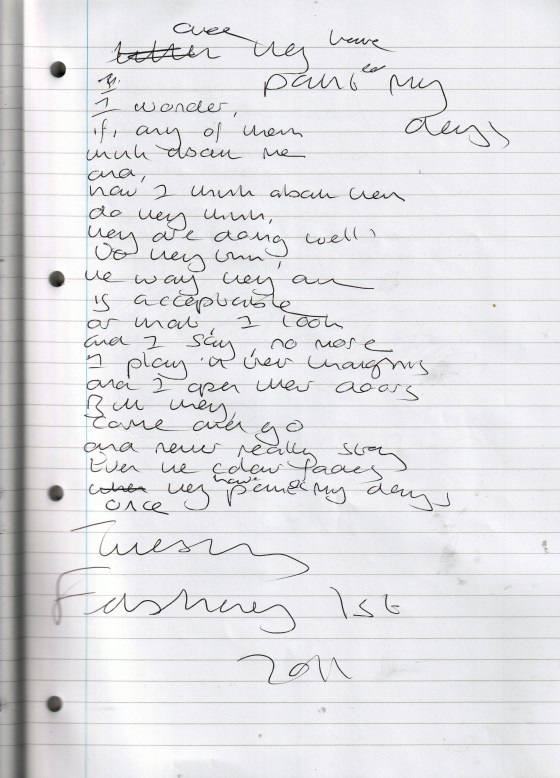 once
they have
painted my
days
I wonder,
if, any of them
think about me
and,
how I think about them
do they think,
they are doing well,
Do they think,
the way they are
is acceptable
or that, I look
and I say, no more
I play in their
and I open their doors
But they,
Come and go
and never really stay
Even the colour fades
when they have painted my days
once
Tuesday
February 1st
2011